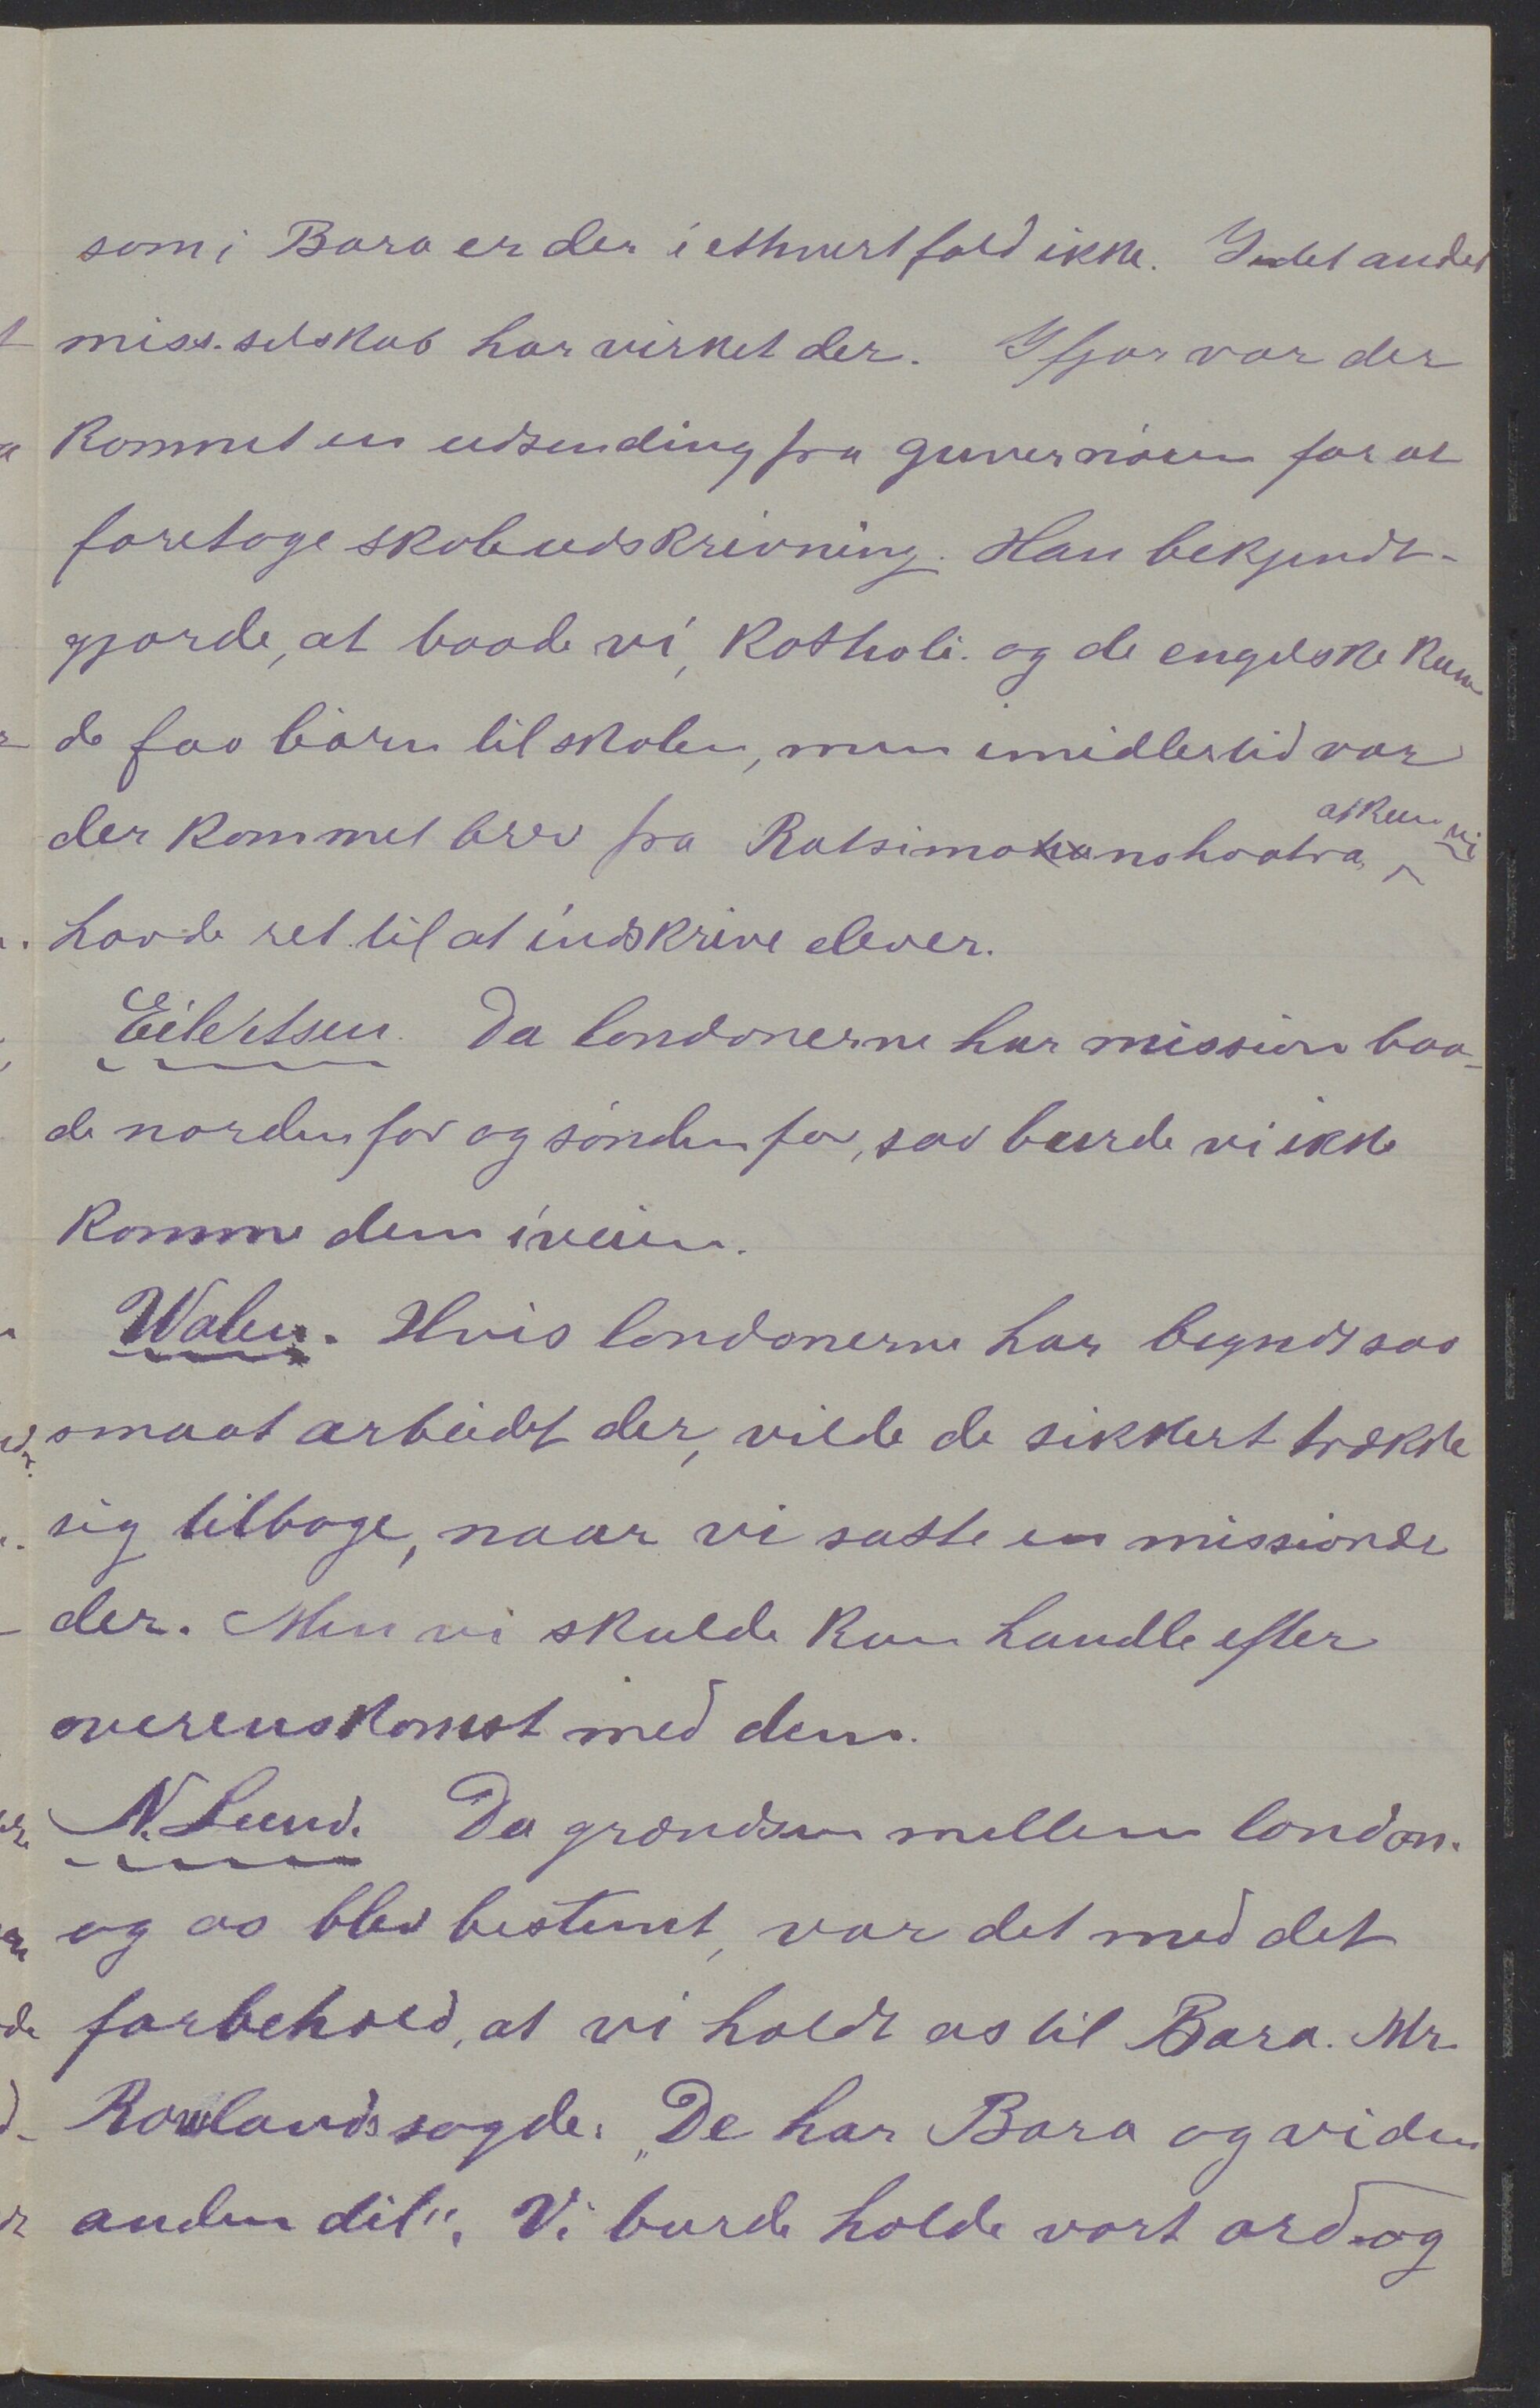 som i Bara er der i ethvert fald ikke. Intet andet
miss. selskab har virket der. Ifjor var der
kommet en udsending fra guvernören for at
foretage skoleudskrivning. Han bekjendt-
gjorde, at baade vi, katholi. og de engelske kun-
de faa börn til skolen, men imidlertid var
der kommet brev fra Ratsimanohatra, at kun vi
havde ret til at indskrive elever.
Eilertsen. Da londonerne har mission baa-
de nordenfor og söndenfor, saa burde vi ikke
komme dem iveien.
Walen. Hvis londonerne har begyndt saa
smaat arbeidet der, vilde de sikkert trække
sig tilbage, naar vi satte en missionær
der. Men vi skulde kun handle efter
overenskomst med dem.
N. Lund. Da grændsen mellem london.
og os blev bestemt, var det med det
forbehold, at vi holdt os til Bara. Mr.
Rowlands sagde: „De har Bara og vi den
anden del". Vi burde holde vort ord og